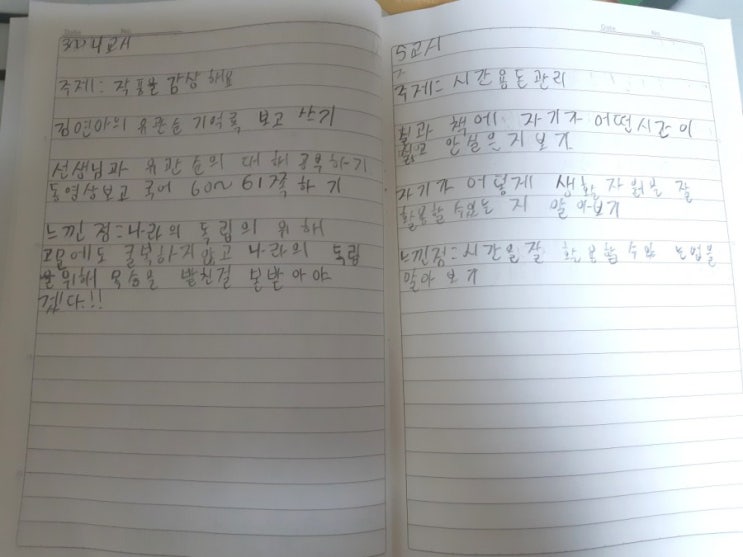 3~4교시
주제: 작품을 감상 해요
김연아의 유관순 기억록 보고 쓰기
선생님과 유관순의 대해 공부하기
동영상보고 국어 60~61쪽 하기
느낀점: 나라의 독립의 위해
에도 굴복하지않고 나라의 독립
을위해 목숨을 받친걸 본받아야
겠다!!
5교시
주제: 시간용돈관리
실과 책에 자기가 어떤시간이
싫은지보기
자기가 어떻게 생활 자원을 잘
활용할수있는지 알아보기
느낀점: 시간을 잘 활용할수있는 방법을
알아보기